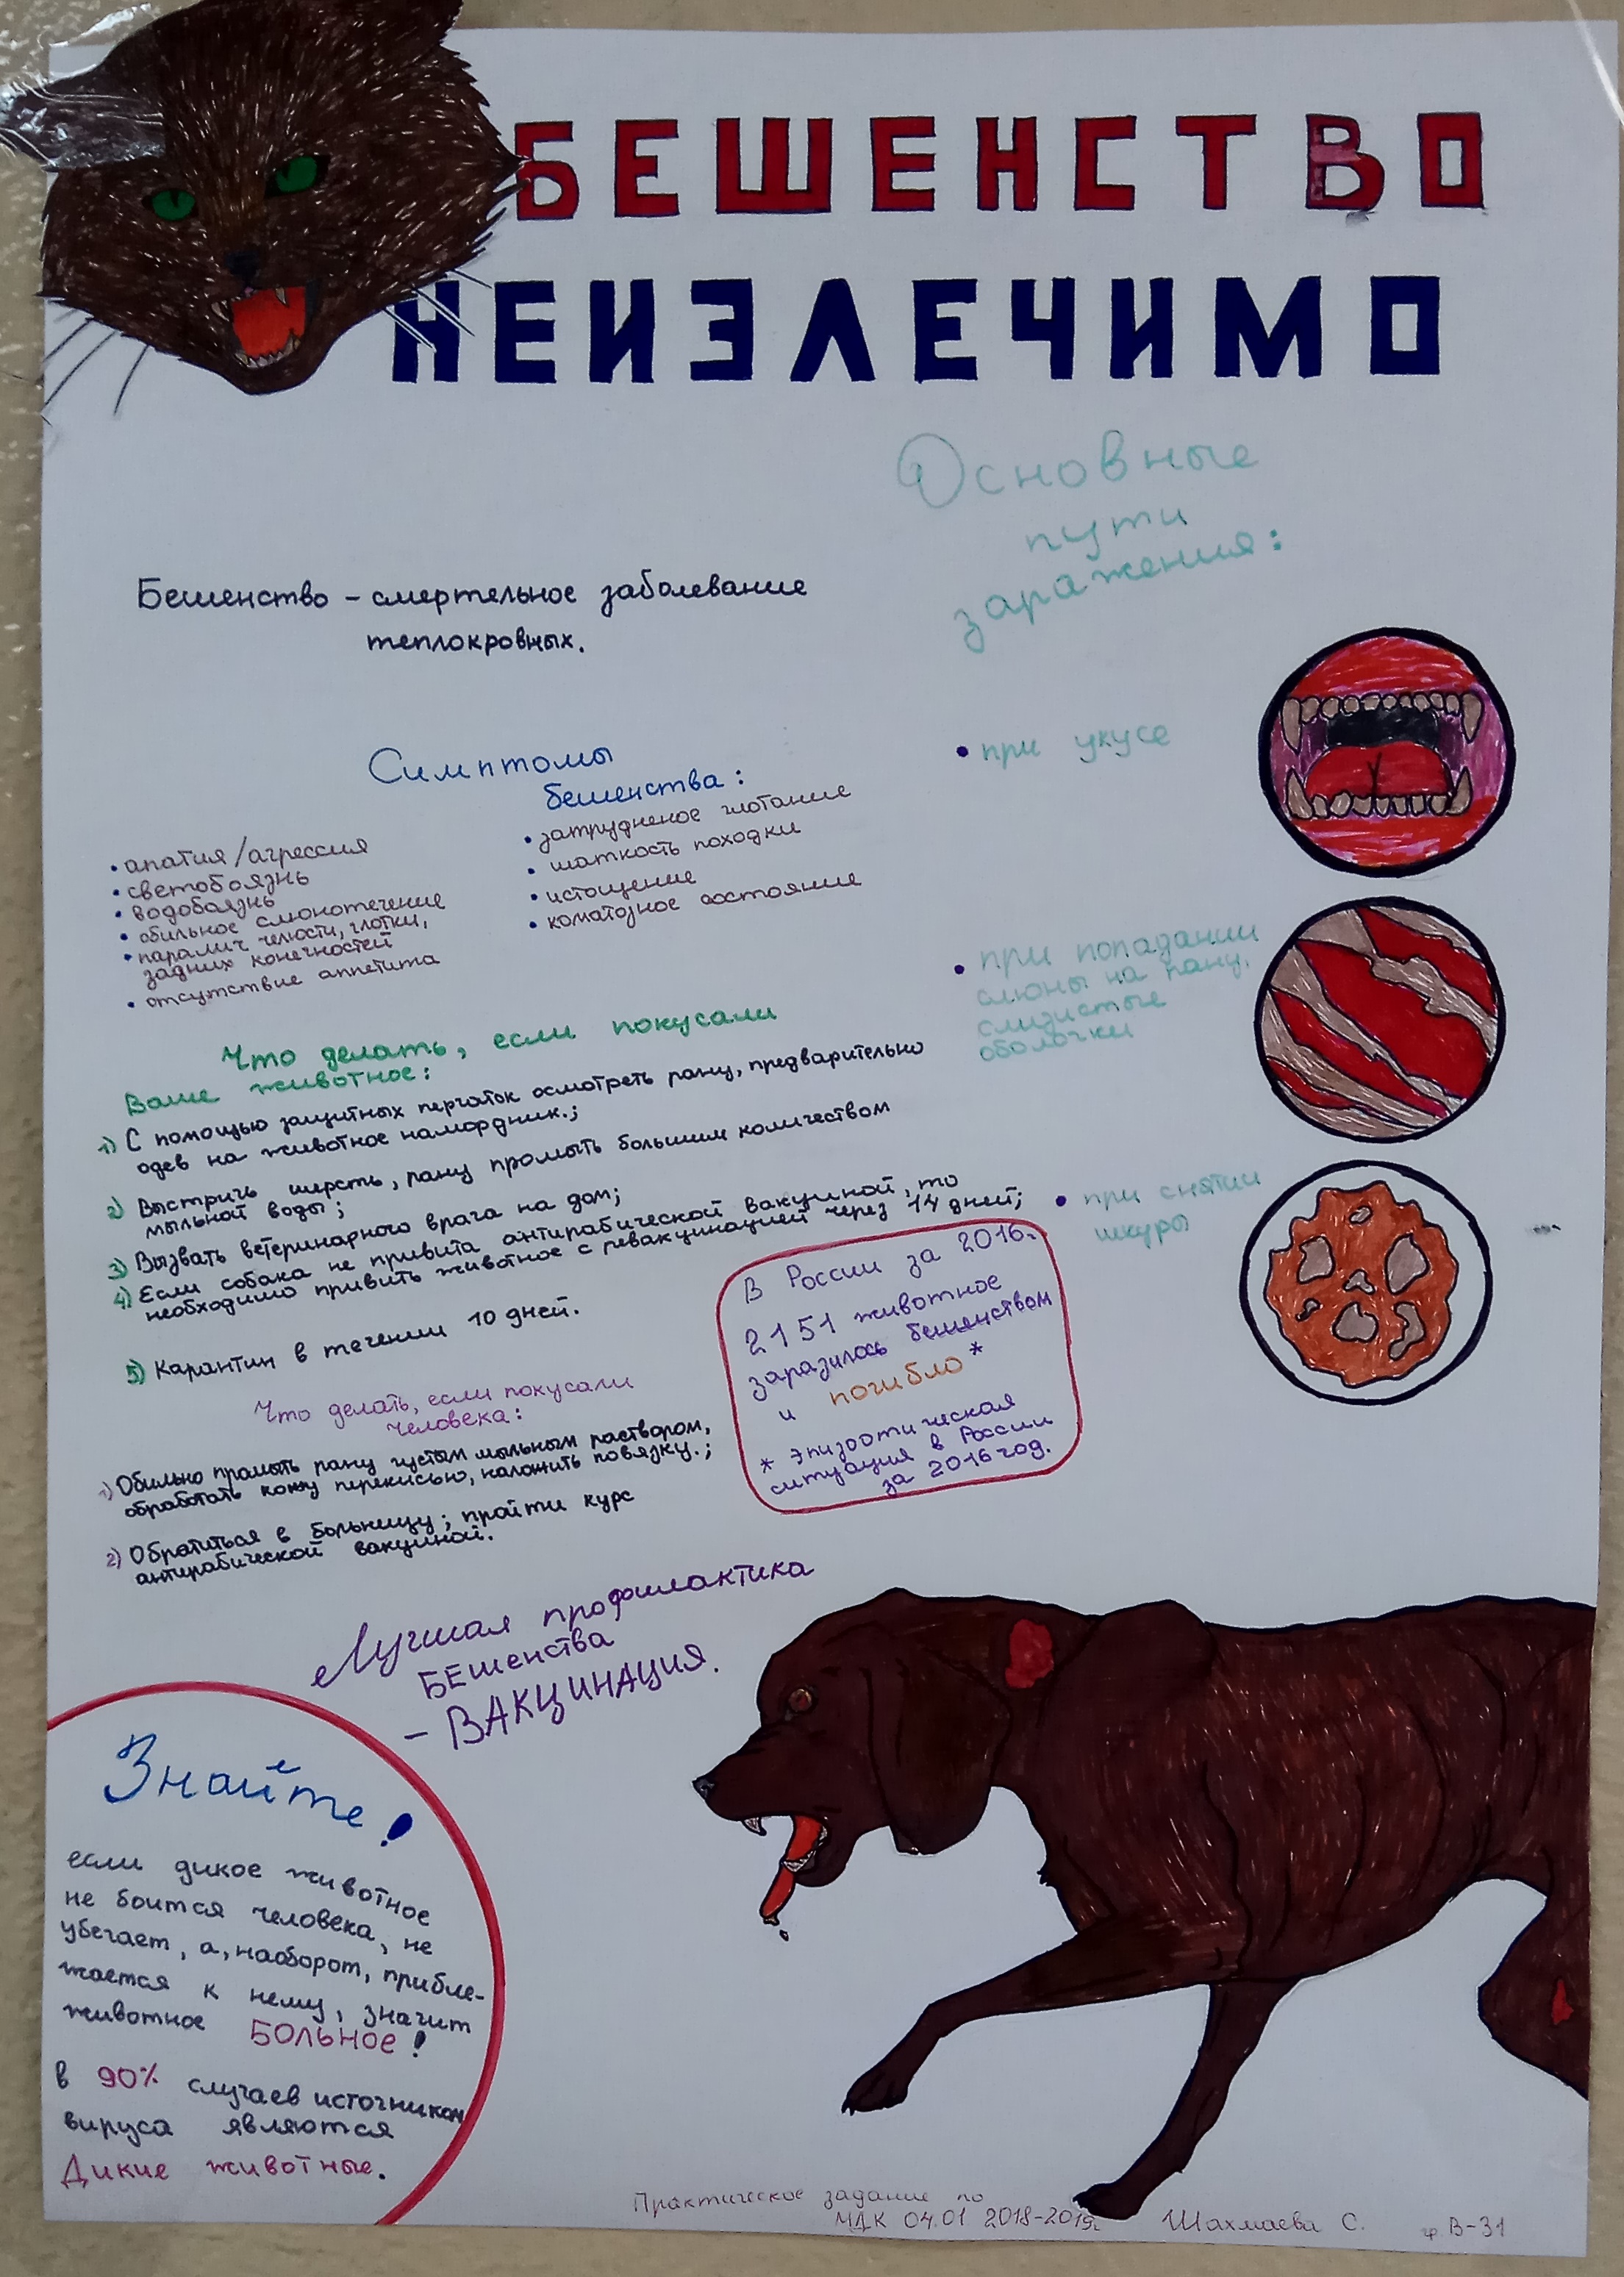 БЕШЕНСТВО
НЕИЗЛЕЧИМО
Бешенство – смертельное заболевание
теплокровных.
Симптомы
бешенства:
• апатия/агрессия
• светобоязнь
• водобоязнь
• обильное слюнотечение
• паралич челюсти, глотки,
задних конечностей
• отсутствие аппетита
• затрудненое глотание
• шаткость походки
• истощение
• коматозное состояние
Что делать, если покусали
Ваше животное:
1) С помощью защитных перчаток осмотреть рану, предварительно
одев на животное намордник.;
2) Выстричь шерсть, рану промыть большим количеством
мыльной воды;
3) Вызвать ветеринарного врача на дом;
4) Если собака не привита антирабической вакциной, то
необходимо привить животное с ревакцинацией через 14 дней;
5) Карантин в течении 10 дней.
Что делать, если покусали
человека:
1) Обильно промыть рану густым мыльным раствором,
обработать кожу перекисью, наложить повязку.;
2) Обратиться в больницу; пройти курс
антирабической вакциной.
Лучшая профилактика
БЕшенства
– ВАКЦИНАЦИЯ.
Основные
пути
заражения:
• при укусе
• при попадании
слюны на рану,
слизистые
оболочки
• при снятии
шкуры
В России за 2016г.
2151 животное
заразилось бешенством
и погибло*
* Эпизоотическая
ситуация в России
за 2016 год.
Знайте!
если дикое животное
не боится человека, не
убегает, а, наоборот, прибле-
жается к нему, значит
животное БОЛЬНОЕ!
в 90% случаев источником
вируса являются
Дикие животные.
Практическое задание по
МДК 04.01 2018-2019г.
Шахмаева С. гр. В-31